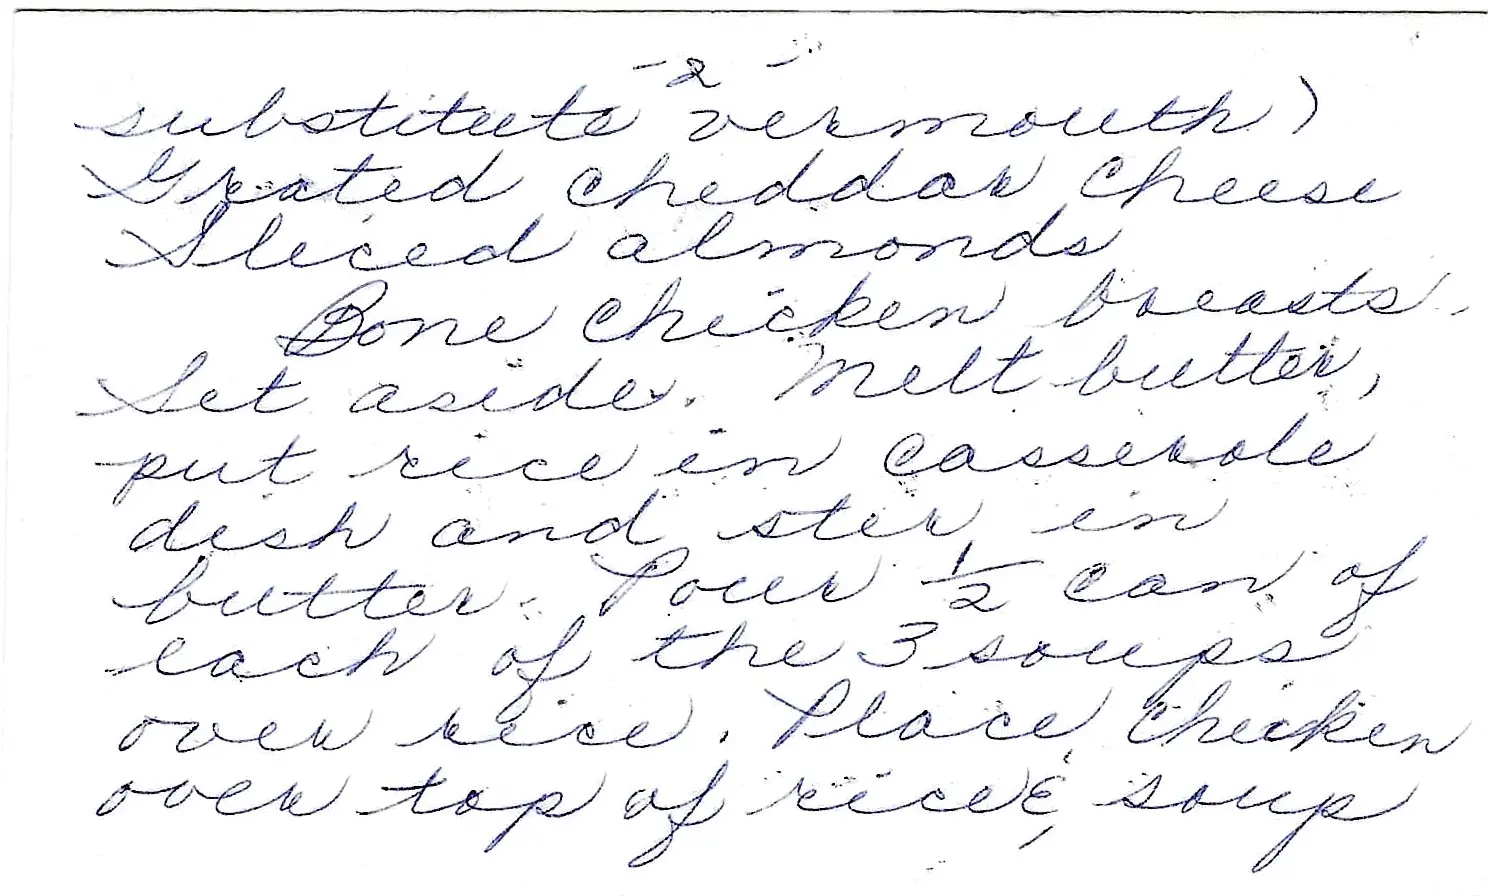 - 2 -
substitute vermouth)
Grated cheddar cheese
Sliced almonds
Bone chicken breasts.
Set aside. Melt butter,
put rice in casserole
dish and stir in
butter. Pour 1/2 can of
each of the 3 soups
over rice. Place chicken
over top of rice & soup